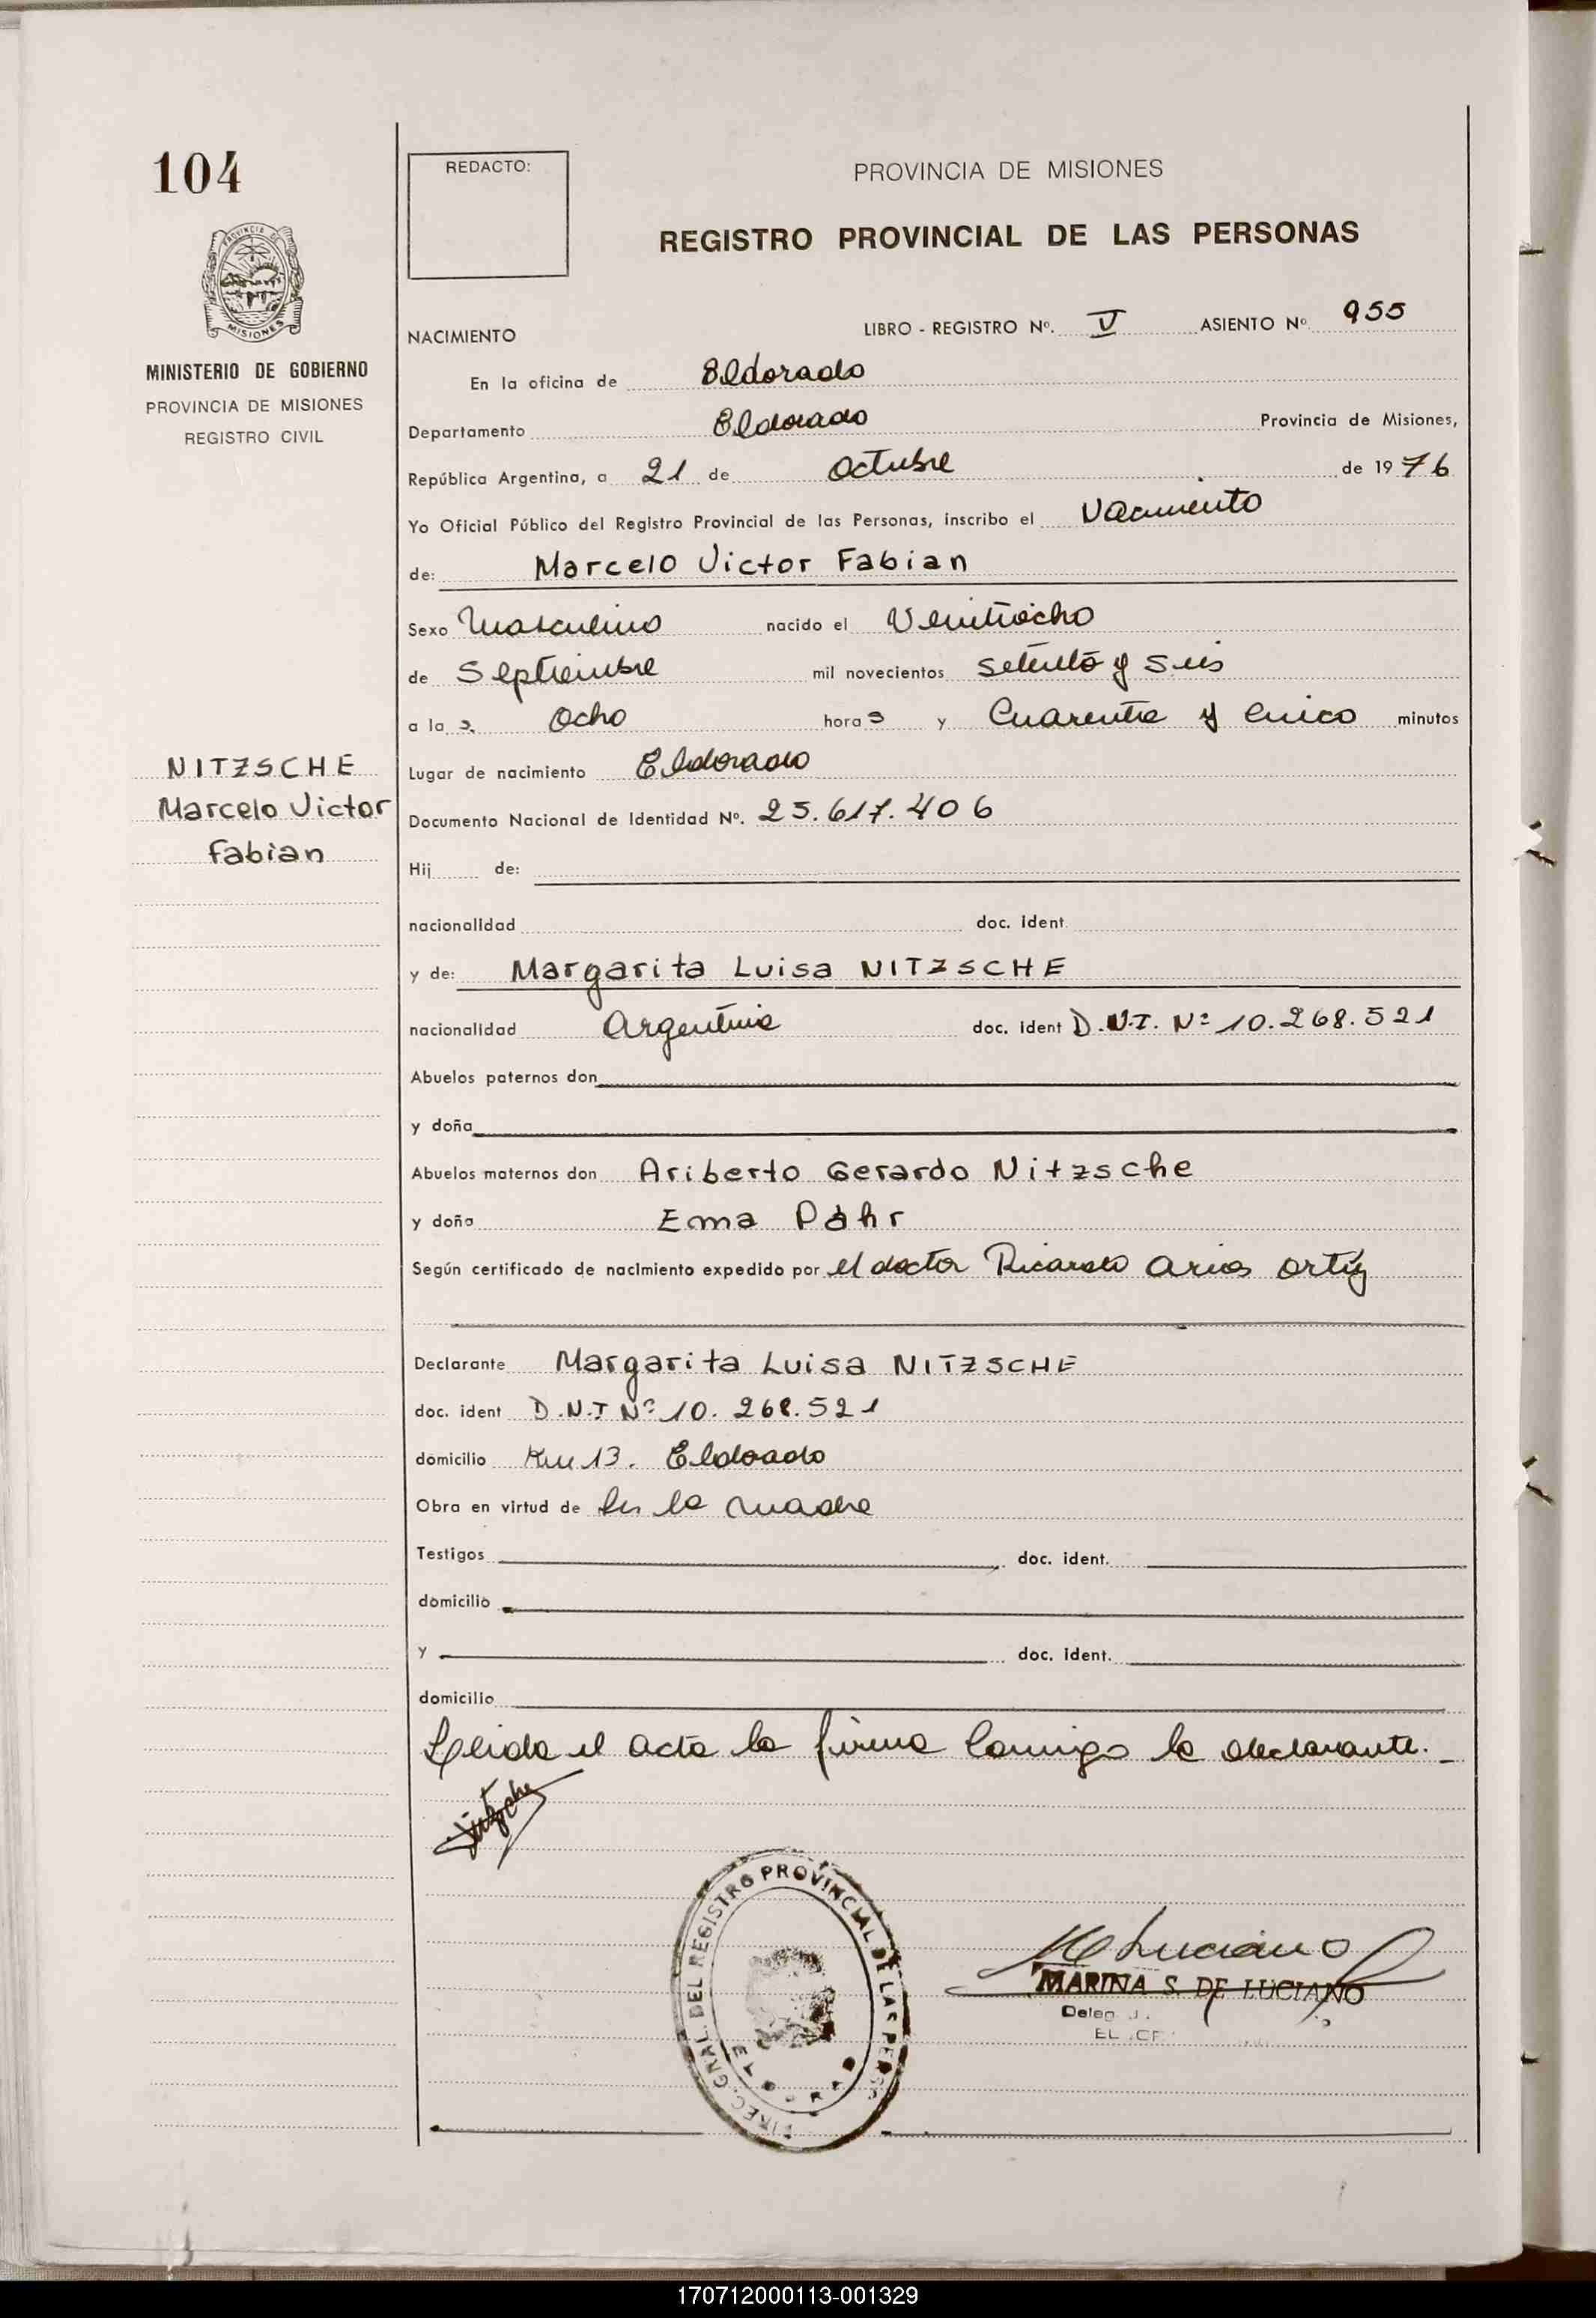 104
REDACTO:
PROVINCIA DE MISIONES
REGISTRO PROVINCIAL DE LAS PERSONAS
PROVINCIA DE
MISIONES
MINISTERIO DE GOBIERNO
PROVINCIA DE MISIONES
REGISTRO CIVIL
NACIMIENTO
LIBRO - REGISTRO Nº. V ASIENTO Nº 955
En la oficina de Eldorado
Departamento Eldorado Provincia de Misiones,
República Argentina, a 21 de Octubre de 1976
Yo Oficial Público del Registro Provincial de las Personas, inscribo el Nacimiento
de: Marcelo Victor Fabian
Sexo Masculino nacido el Veintiocho
de Septiembre mil novecientos setenta y seis
a las Ocho horas y Cuarenta y cinco minutos
NITZSCHE
Marcelo Victor
Fabian
Lugar de nacimiento Eldorado
Documento Nacional de Identidad Nº. 25.617.406
Hij de:
nacionalidad doc. ident.
y de: Margarita Luisa NITZSCHE
nacionalidad Argentina doc. ident D.N.I. Nº 10.268.521
Abuelos paternos don
y doña
Abuelos maternos don Ariberto Gerardo Nitzsche
y doña Ema Pahr
Según certificado de nacimiento expedido por el doctor Ricardo Arios Ortiz
Declarante Margarita Luisa NITZSCHE
doc. ident D.N.I Nº 10.268.521
domicilio Km 13. Eldorado
Obra en virtud de ser la madre
Testigos doc. ident.
domicilio
y doc. ident.
domicilio
Leida el acta la firma conmigo la declarante.
Nitzsche
DIREC. GRAL. DEL REGISTRO PROVINCIAL DE LAS PERSO
M Luciano
MARINA S. DE LUCIANO
170712000113-001329